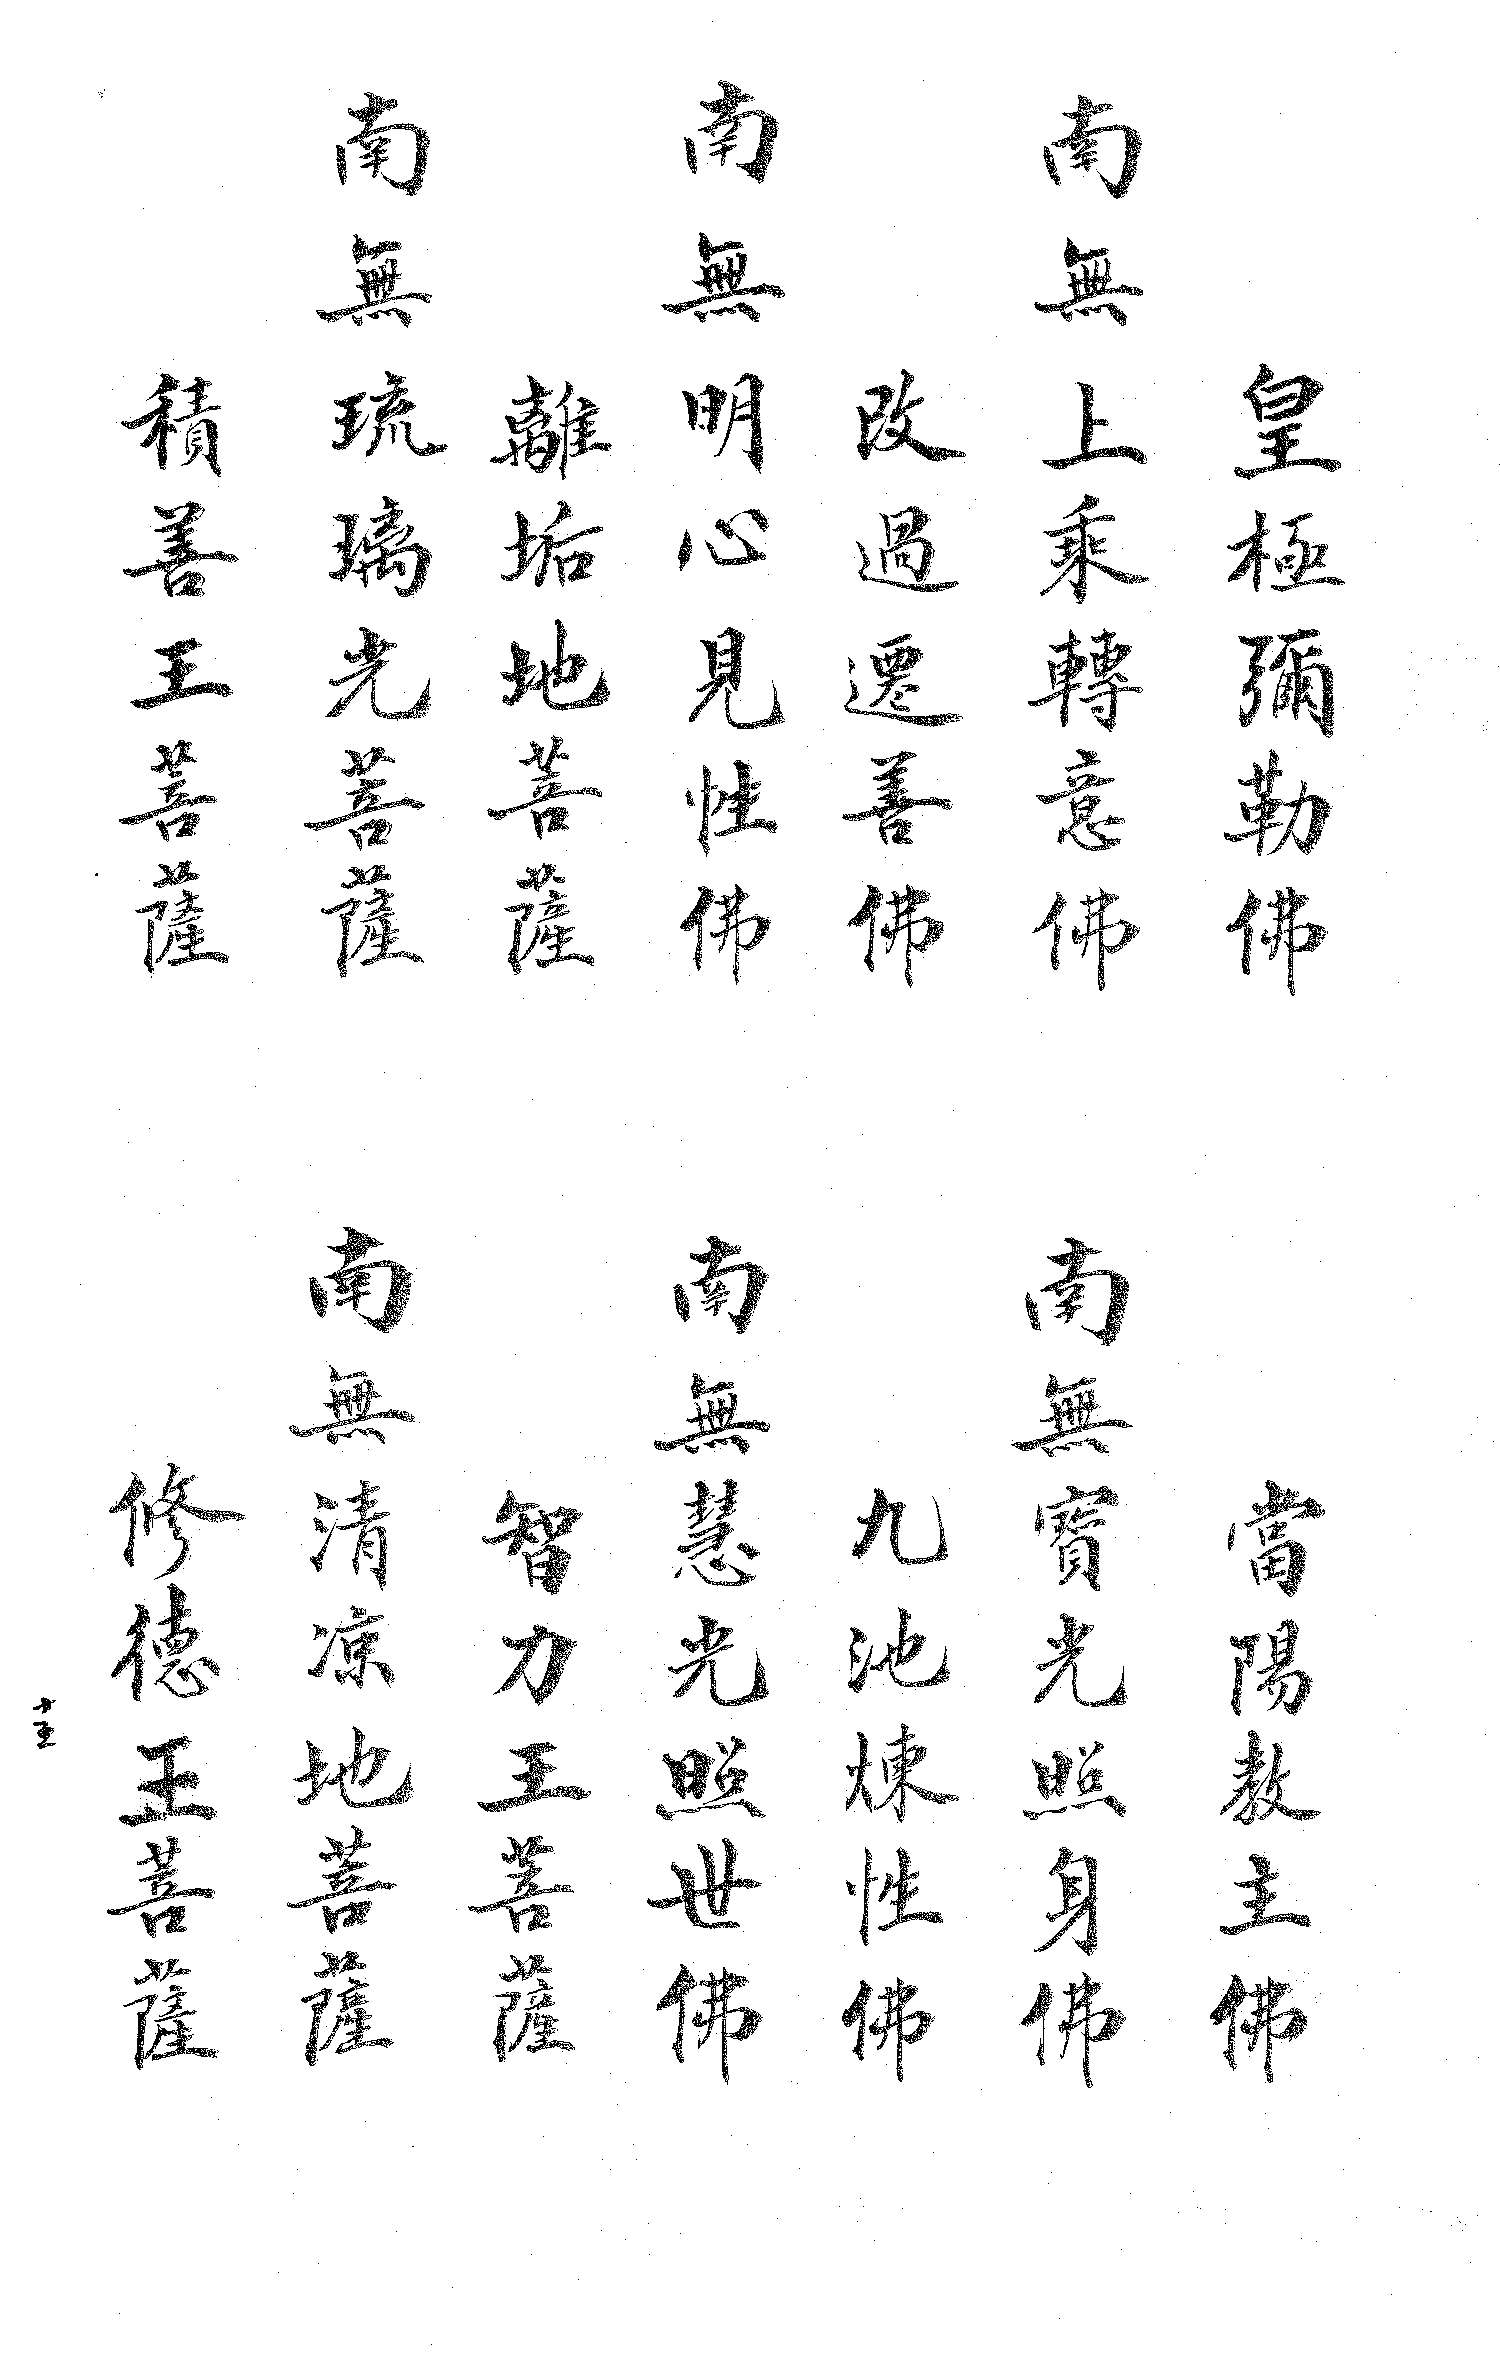 皇極彌勒佛
南無上乘轉意佛
改過遷善佛
南無明心見性佛
離垢地菩薩
南無琉璃光菩薩
積善王菩薩
當陽教主佛
南無寶光照身佛
九池煉性佛
南無慧光照世佛
智力王菩薩
南無清凉地菩薩
修德王菩薩
十五